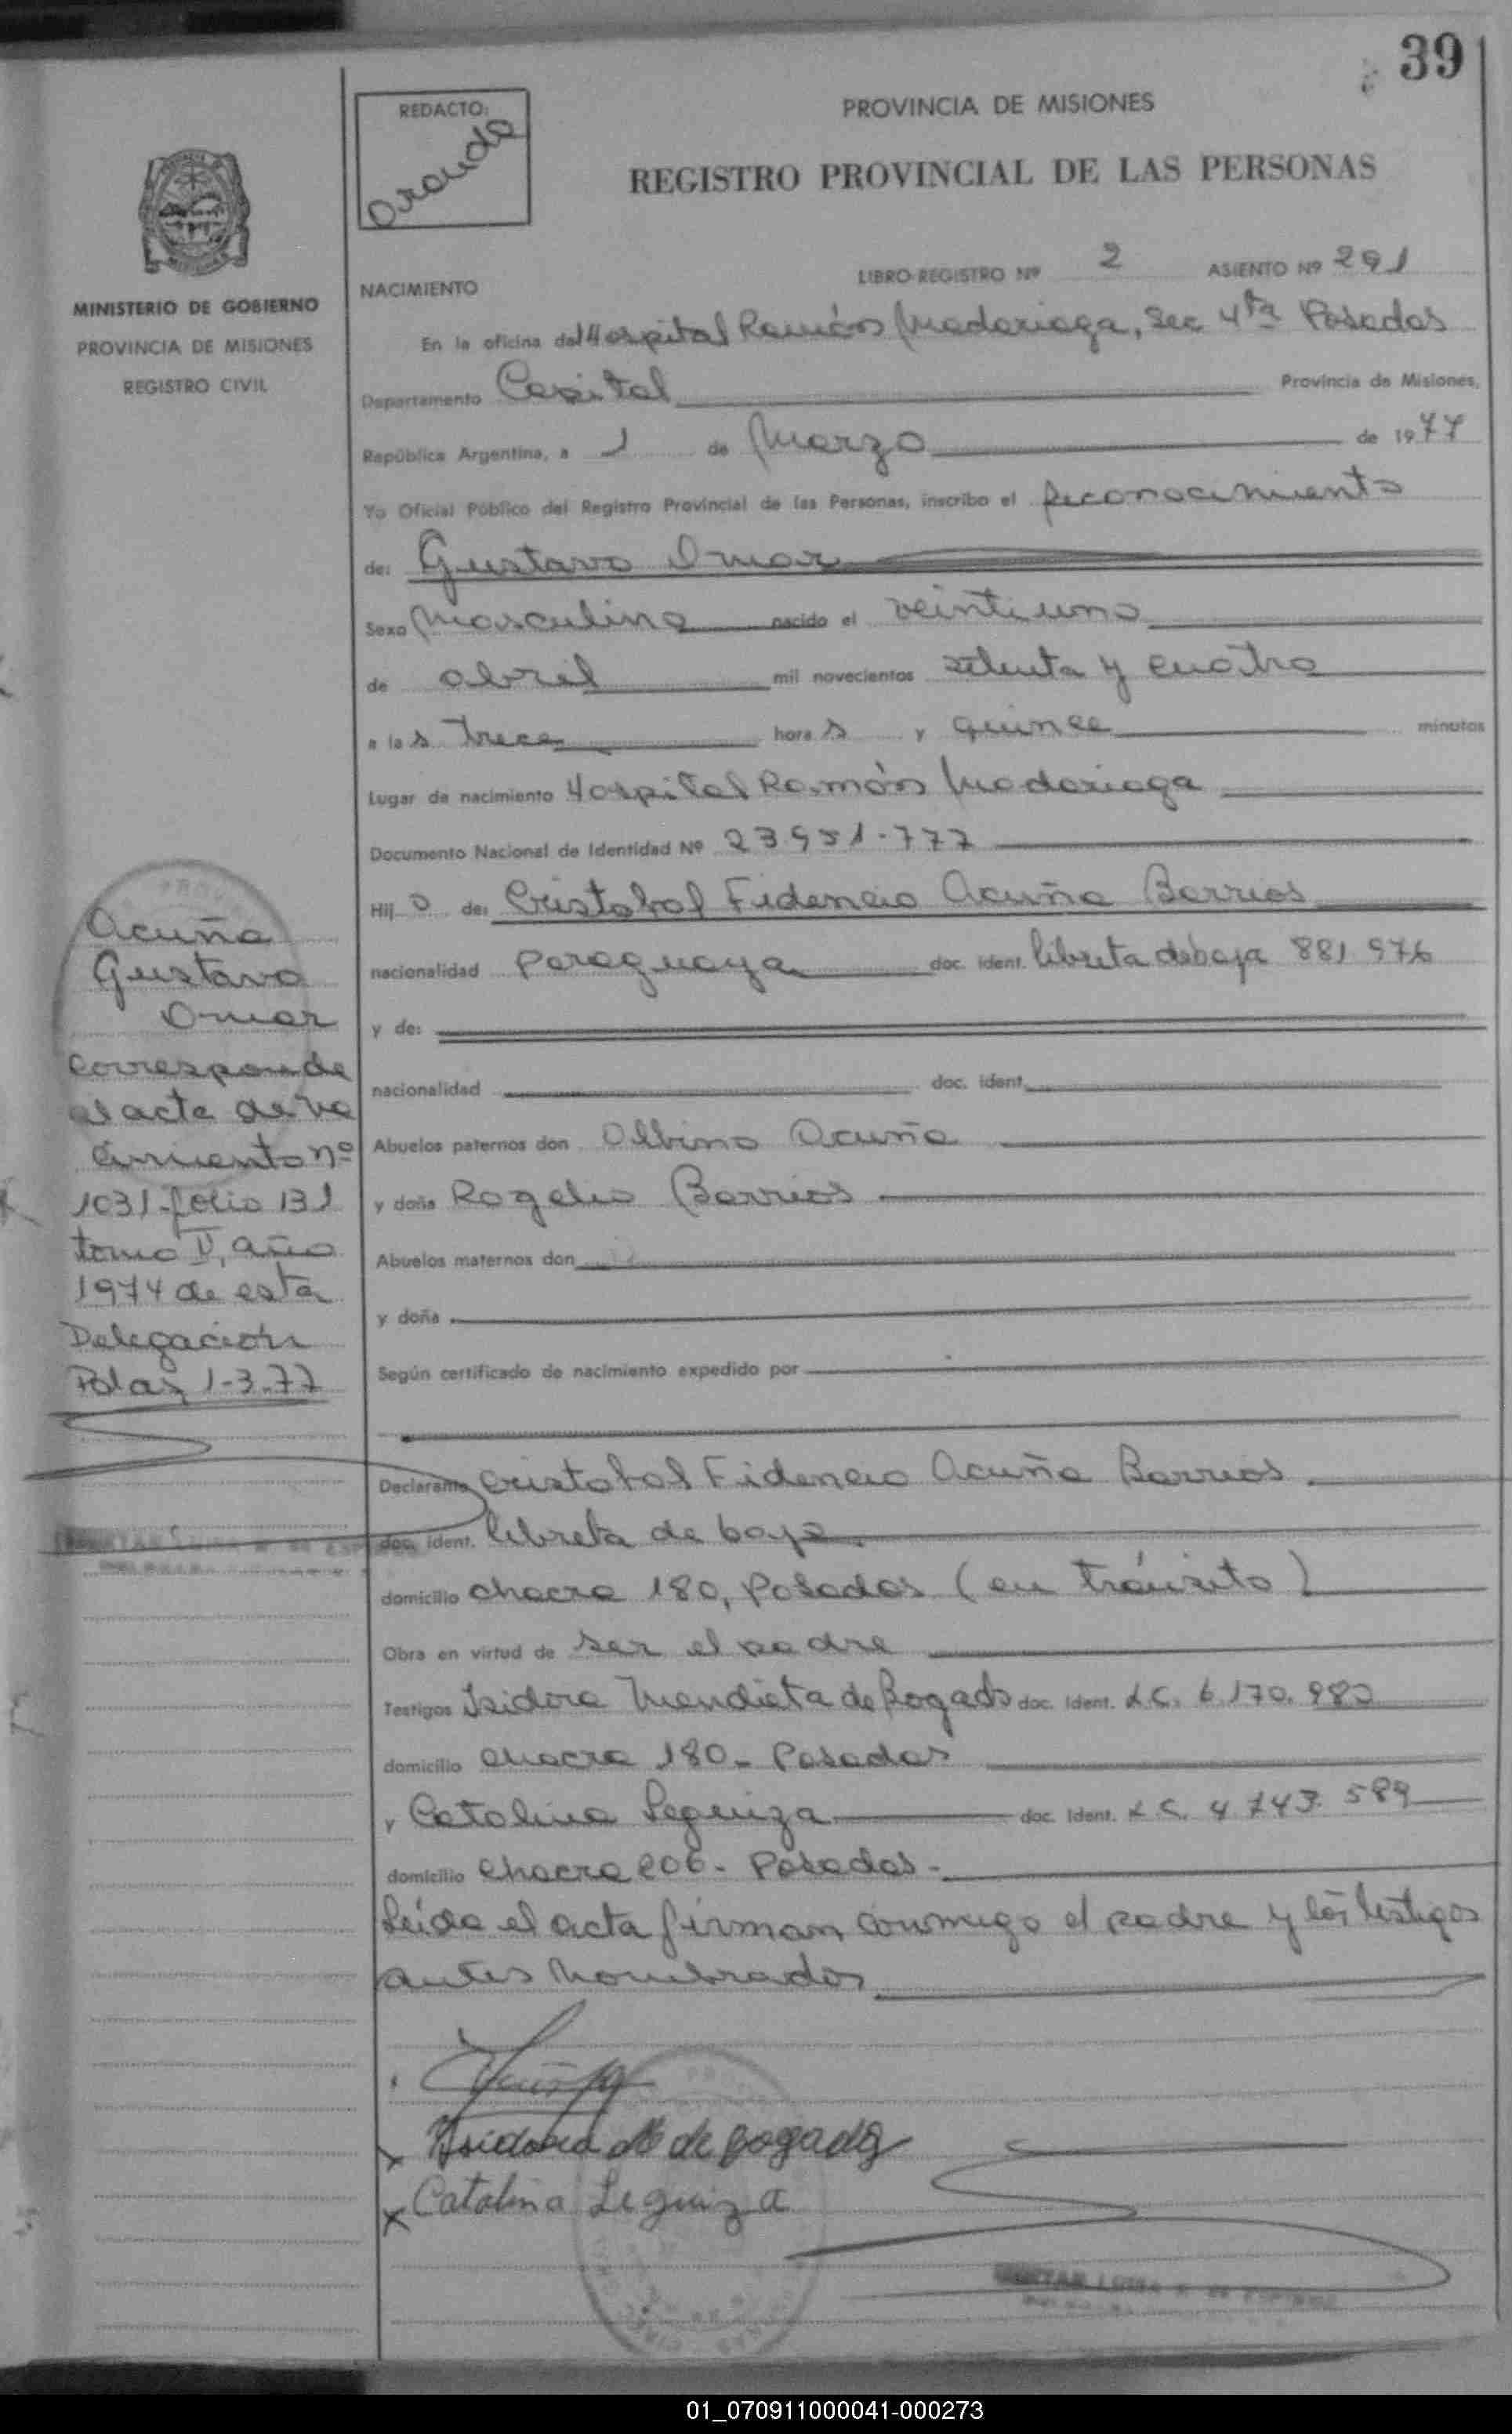 39
REDACTO:
Aranda
PROVINCIA DE MISIONES
REGISTRO PROVINCIAL DE LAS PERSONAS
MINISTERIO DE GOBIERNO
PROVINCIA DE MISIONES
REGISTRO CIVIL
NACIMIENTO
LIBRO-REGISTRO Nº 2 ASIENTO Nº 291
En la oficina del Hospital Ramón Madariaga, Sec 4ta Posadas
Departamento Capital Provincia de Misiones,
República Argentina, a 1 de Marzo de 1977
Yo Oficial Público del Registro Provincial de las Personas, inscribo el Reconocimiento
de: Gustavo Omar
Sexo Masculino nacido el veintiuno
de abril mil novecientos setenta y cuatro
a las trece horas y quince minutos
Lugar de nacimiento Hospital Ramón Madariaga
Documento Nacional de Identidad Nº 23.951.777
Hijo de: Cristobal Fidencio Acuña Barrios
nacionalidad Paraguaya doc. ident. libreta de baja 881 976
y de:
nacionalidad doc. ident.
Abuelos paternos don Albino Acuña
y doña Rogelia Barrios
Abuelos maternos don
y doña
Según certificado de nacimiento expedido por
Declarante Cristobal Fidencio Acuña Barrios
doc. ident. libreta de baja
domicilio chacra 180, Posadas (en tránsito)
Obra en virtud de ser el padre
Testigos Isidora Mendieta de Rogado doc. Ident. L.C. 6.170.980
domicilio chacra 180- Posadas
y Catalina Leguiza doc. Ident. L.C. 4.743.589
domicilio chacra 206- Posadas-
Leída el acta firman conmigo el padre y los testigos
antes nombrados
Isidora M de Rogado
Catalina Leguiza
Acuña
Gustavo
Omar
Corresponde
al acta de na
cimiento nº
1031-folio 131
tomo II, año
1974 de esta
Delegación
Pdas, 1-3-77
01_070911000041-000273